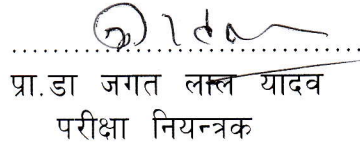 प्रा.डा जगत लाल यादव
परीक्षा नियन्त्रक